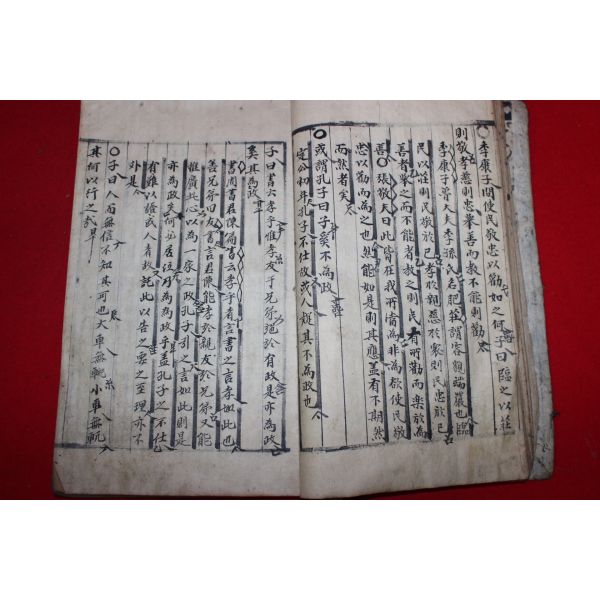 ○季康子問使民敬忠以勸如之何子曰臨之以莊
則敬孝慈則忠擧善而教不能則勸
季康子魯大夫季孫氏名肥莊謂容貌端嚴也臨
民以莊則民敬於己孝於親慈於衆則民忠於己
善者擧之而不能者教之則民有所勸而樂於為
善○張敬夫曰此皆在我所當為非為欲使民敬
忠以勸而為之也然能如是則其應盖有不期然
而然者矣
○或謂孔子曰子奚不為政
定公初年孔子不仕故或人疑其不為政也
子曰書云孝乎惟孝友于兄弟施於有政是亦為政
奚其為政
書周書君陳篇書云孝乎者言書之言孝如此也
善兄弟曰友書言君陳能孝於親友於兄弟又能
推廣此心以為一家之政孔子引之言如此則是
亦為政矣何必居位乃為為政乎盖孔子之不仕
有難以語或人者故託此以告之要之至理亦不
外是
○子曰人而無信不知其可也大車無輗小車無軏
其何以行之哉